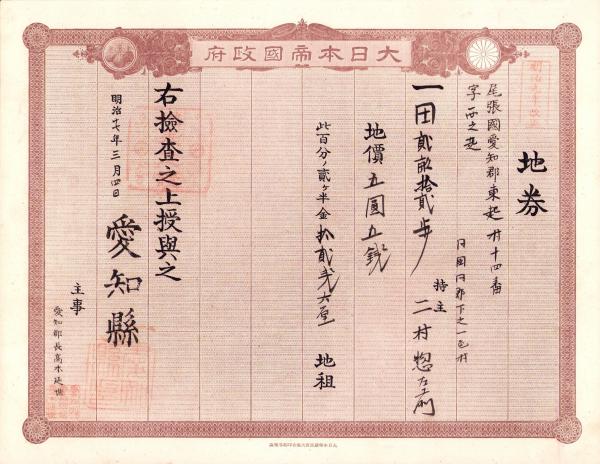 大日本帝國政府
地券
尾張國愛知郡東起村十四番
字西之起
同國同郡下之一色村
持主 二村惣左衛門
一田貳畝拾貳歩
地價五圓五錢
此百分ノ貳ヶ半金拾貳銭六厘 地租
右撿査之上授與之
明治十七年三月四日
愛知縣
主事
愛知郡長高木延世